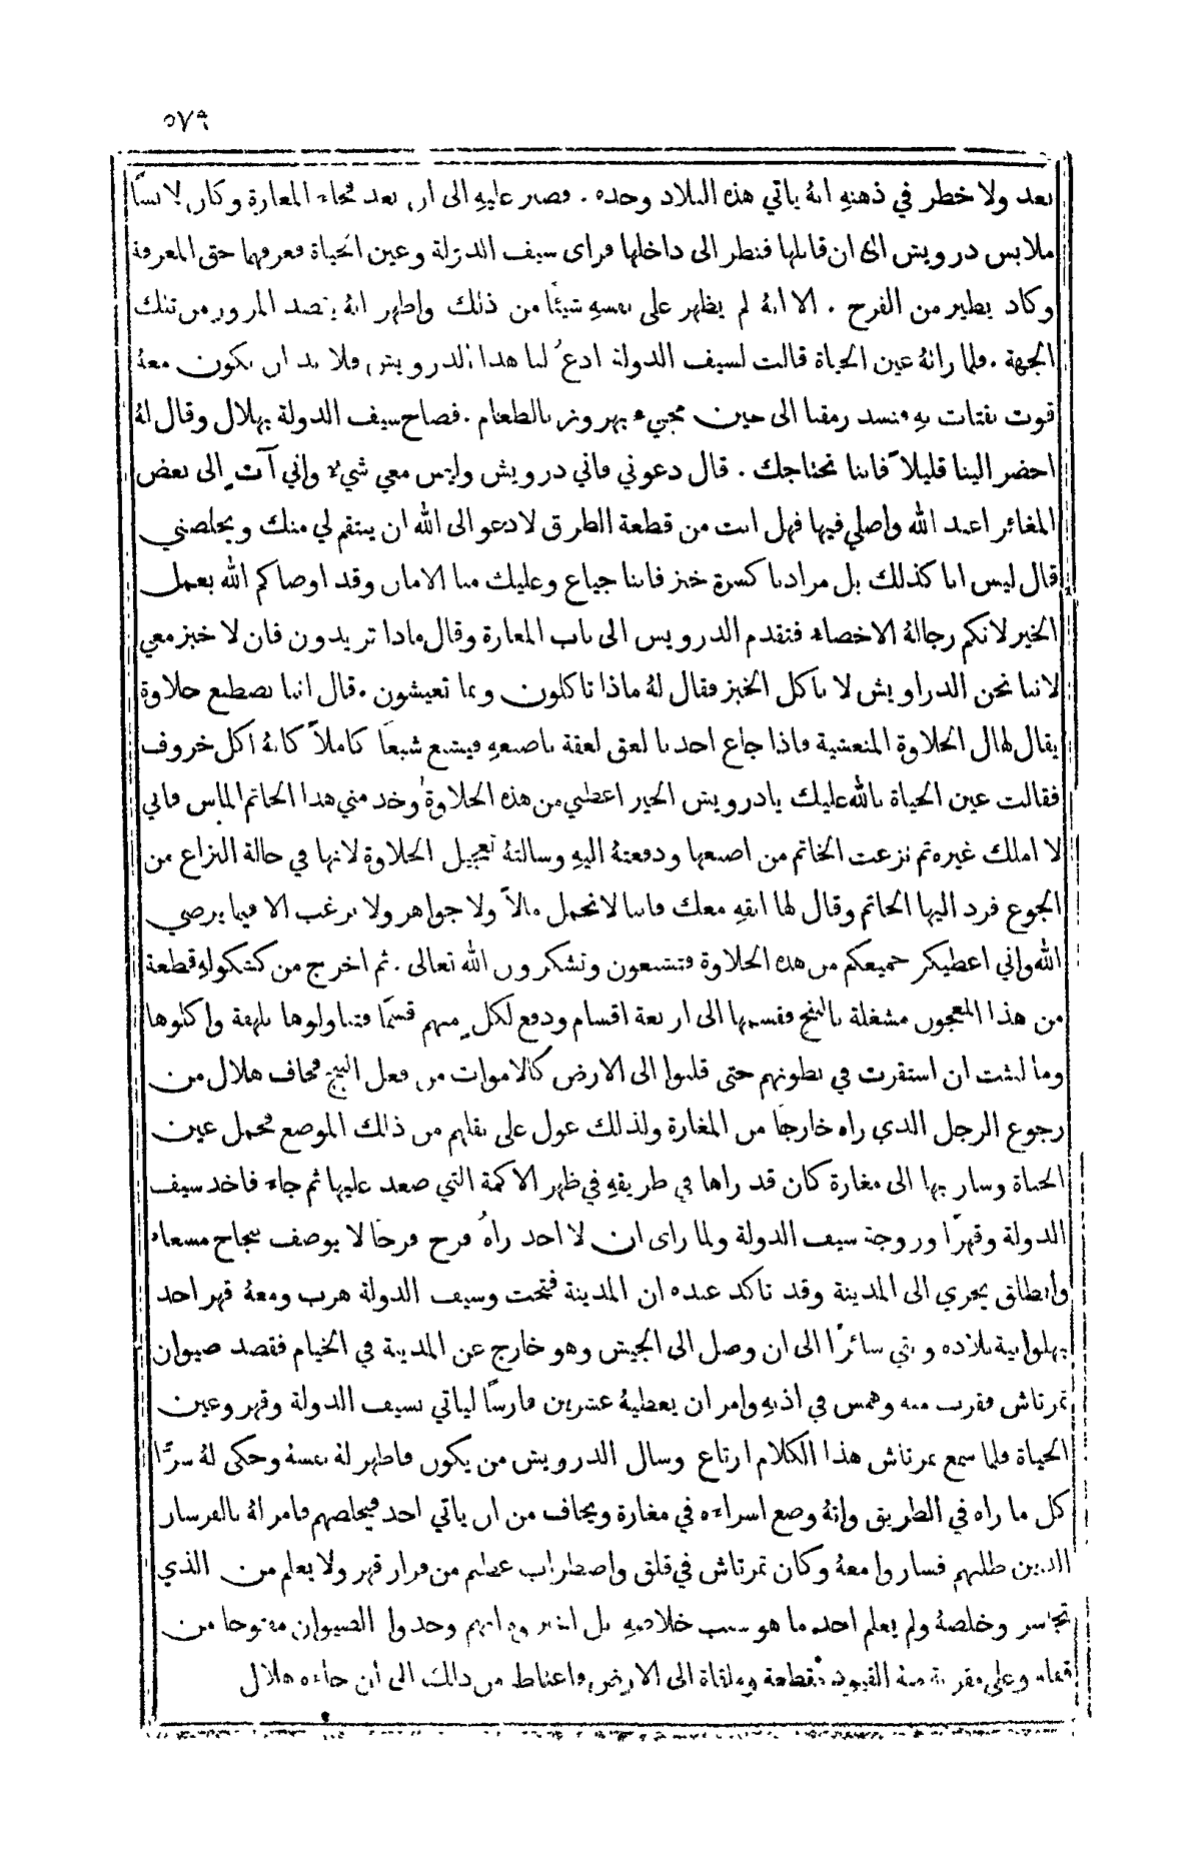 ٥٧٩
بعد ولا خطر في ذهنهِ انهُ ياتي هذه البلاد وحده . فصبر عليهِ الى ان بعد فجاء المغارة وكان لابسًا
ملابس درويش الى ان قابلها فنظر الى داخلها فراى سيف الدولة وعين الحياة فعرفهما حق المعرفة
وكاد يطير من الفرح . الا انهُ لم يظهر على نفسهِ شيئًا من ذلك واظهر انهُ يقصد المرور من تلك
الجهة . فلما راتهُ عين الحياة قالت لسيف الدولة ادعُ لنا هذا الدرويش فلا بد ان يكون معهُ
قوت نقتات بهِ فنسد رمقنا الى حين مجيء بهروز بالطعام . فصاح سيف الدولة بهلال وقال لهُ
احضر الينا قليلاً فاننا نحتاجك . قال دعوني فاني درويش وليس معي شيء واني آتٍ الى بعض
المغائر اعبد الله واصلي فيها فهل انت من قطعة الطرق لادعو الى الله ان ينتقم لي منك ويخلصني
قال ليس انا كذلك بل مرادنا كسرة خبز فاننا جياع وعليك منا الامان وقد اوصاكم الله بعمل
الخير لانكم رجالهُ الاخصاء فتقدم الدرويس الى باب المغارة وقال ماذا تريدون فان لا خبز معي
لاننا نحن الدراويش لا ناكل الخبز فقال لهُ ماذا تاكلون وبما تعيشون . قال اننا نصطنع حلاوة
يقال لها ال الحلاوة المنعشية فاذا جاع احدنا لعق لعقة باصبعهِ فيشبع شبعًا كاملاً كانهُ اكل خروف
فقالت عين الحياة بالله عليك يا درويش الخير اعطني من هذه الحلاوة وخذ مني هذا الخاتم الماس فاني
لا املك غيره ثم نزعت الخاتم من اصبعها ودفعتهُ اليهِ وسالتهُ تعجيل الحلاوة لانها في حالة النزاع من
الجوع فرد اليها الخاتم وقال لها ابقهِ معك فاننا لا نحمل مالاً ولا جواهر ولا نرغب الا فيما يرضي
الله واني اعطيكم جميعكم من هذه الحلاوة فتشبعون وتشكرون الله تعالى . ثم اخرج من كشكولهِ قطعة
من هذا المعجون مشغلة بالبنج فقسمها الى اربعة اقسام ودفع لكلٍ منهم قسمًا فتناولوها بلهفة واكلوها
وما لبثت ان استقرت في بطونهم حتى قلبوا الى الارض كالاموات من فعل البنج فخاف هلال من
رجوع الرجل الذي راه خارجًا من المغارة ولذلك عول على نقلهم من ذلك الموضع فحمل عين
الحياة وسار بها الى مغارة كان قد راها في طريقهِ في ظهر الاكمة التي صعد عليها ثم جاء فاخذ سيف
الدولة وقهرًا وزوجة سيف الدولة ولما راى ان لا احد راهُ فرح فرحًا لا يوصف بنجاح مسعاه
وانطلق يجري الى المدينة وقد تاكد عنده ان المدينة فتحت وسيف الدولة هرب ومعهُ قهر احد
بهلوانية بلاده وبقي سائرًا الى ان وصل الى الجيش وهو خارج عن المدينة في الخيام فقصد صيوان
تمرتاش فقرب منه وهمس في اذنهِ وامر ان يعطيهُ عشرين فارسًا لياتي بسيف الدولة وقهر وعين
الحياة فلما سمع تمرتاش هذا الكلام ارتاع وسال الدرويش من يكون فاظهر لهُ نفسهُ وحكى لهُ سرًّا
كل ما راه في الطريق وانهُ وضع اسراءه في مغارة ويخاف من ان ياتي احد فيخلصهم فامر لهُ بالفرسان
الذين طلبهم فساروا معهُ وكان تمرتاش في قلق واضطراب عظيم من فرار قهر ولا يعلم من الذي
تجاسر وخلصهُ ولم يعلم احد ما هو سبب خلاصهِ بل انهم وجدوا الصيوان مفتوحا من
قفاه وعلى مقربة منهُ القيود مقطعة وملقاة الى الارض واغتاظ من ذلك الى ان جاءه هلال